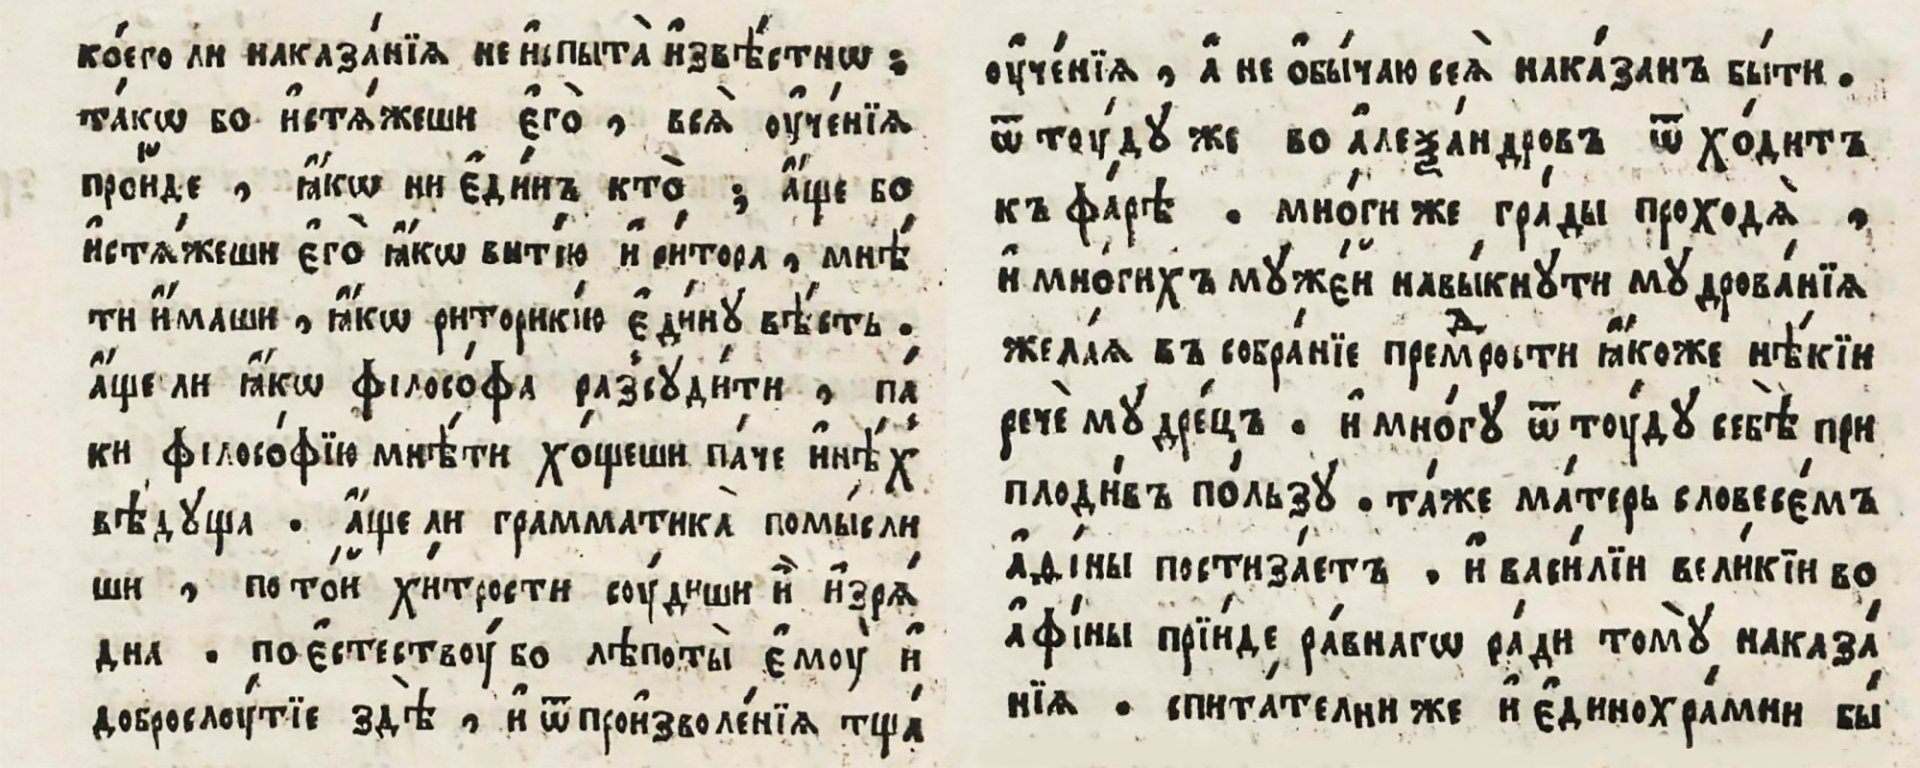 ко́его ли наказа́нїѧ не и҆спыта̀ и҆звѣ́стнѡ ;
та́кѡ бо и҆стѧ́жеши є҆го̀ , всѧ̀ оу҆че́нїѧ
про́йде , ꙗ҆́кѡ ни є҆ди́нъ кто̀ ; а҆́ще бо
и҆стѧ́жеши є҆го̀ ꙗ҆́кѡ вити́ю и҆ ри́тора , мнѣ́
ти и҆́маши , ꙗ҆́кѡ риторикі́ю є҆ди́нꙋ вѣ́сть .
а҆́ще ли ꙗ҆́кѡ філосо́фа разсꙋди́ти , па́
ки філосо́фїю мнѣ́ти хо́щеши па́че и҆нѣ́х
вѣ́дꙋща . а҆́ще ли грамматика̀ помы́сли
ши , по то́й хи́трости соу́диши и҆̀ и҆зрѧ́
дна . по є҆стествоу́ бо лѣ́поты̀ є҆моу̀ и҆
доброслоу́тїе здѣ̀ , и҆ ѿ прои҆зволе́нїѧ тща́
оу҆че́нїѧ , а҆̀ не о҆бы́чаю сеѧ̀ нака́занъ бы́ти .
ѿ тоу́дꙋ же во а҆леѯа́ндровъ ѿ хо́дитъ
къ фа́рѣ . мно́ги же гра́ды проходѧ̀ ,
и҆ мно́гихъ мꙋже́й навы́кнꙋти мꙋдрова́нїѧ
жела́ѧ въ собра́нїе премⷣрости ꙗ҆́коже нѣ́кїи
речѐ мꙋдре́цъ . и҆ мно́гꙋ ѿ тоу́дꙋ себѣ̀ при
плоди́въ по́льзꙋ . та́же ма́терь словесе́мъ
а҆ѳі́ны постиза́етъ . и҆ васи́лїи вели́кїи во
а҆фі́ны прїи́де ра́внагѡ ра́ди томꙋ̀ наказа́
нїѧ . спита́телни же и҆ є҆динохра́мни бы́